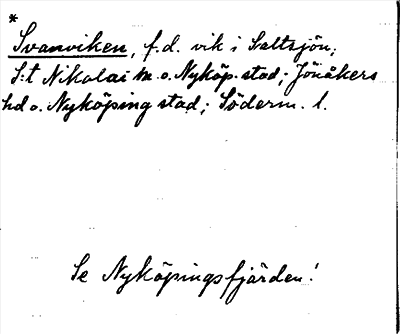 *
Svanviken, f.d. vik i Saltsjön;
S:t Nikolai m. o. Nyköp. stad; Jönåkers
hd o. Nyköping stad; Söderm. l.
Se Nyköpingsfjärden!